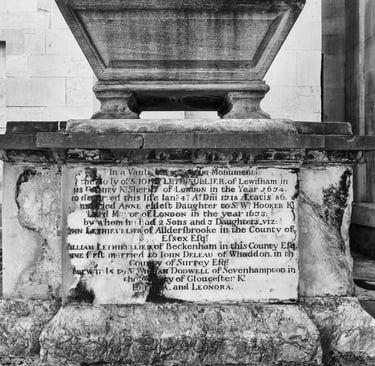 In a Vault
Body of Sr IOHN LETHIEULLIER of Lewisham in
County Kt Sheriff of LONDON in the Year 1674.
departed this life Ian: 4th Ano Dni 1718 Ætatis 86
married ANNE eldest Daughter to Sr Wm HOOKER Kt
Lord Mayor of LONDON in the year 1673:
by whom he had 2 Sons and 3 Daughters, viz:
IOHN LETHIEULLIER of Alldersbrooke in the County of
Essex Esqr
WILLIAM LETHIEULLIER of Beckenham in this County Esqr
ANNE first married to IOHN DELEAU of Whaddon, in the
County of Surrey Esqr
to Sr WILLIAM DODWELL of Sevenhampton in
County of Gloucester Kt
and LEONORA.